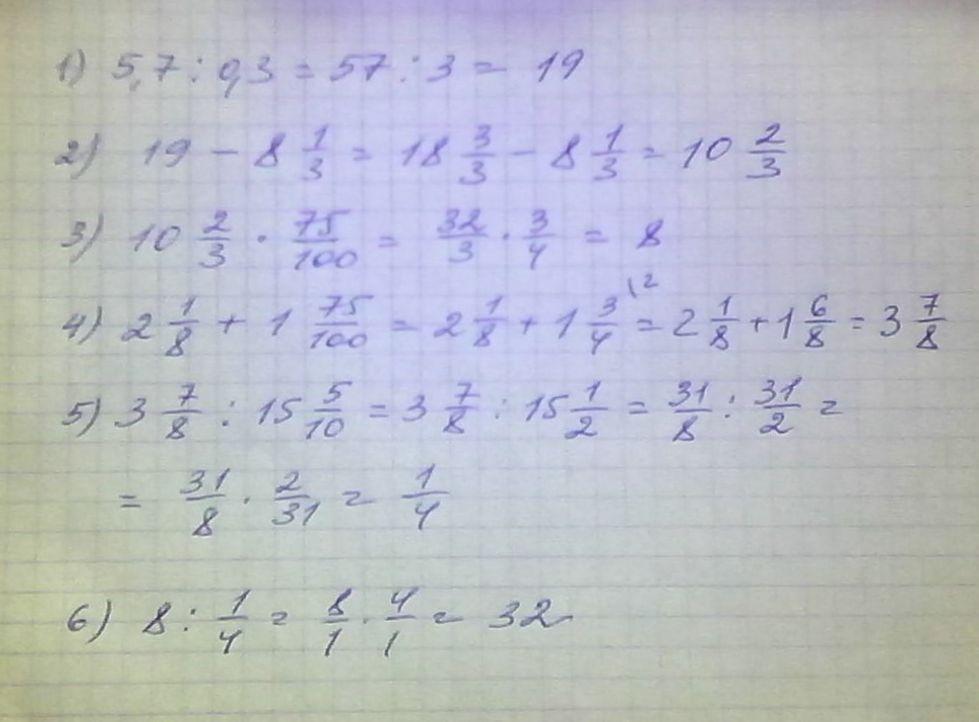 1) 5,7 : 0,3 = 57 : 3 = 19
2) 19 - 8 1/3 = 18 3/3 - 8 1/3 = 10 2/3
3) 10 2/3 · 75/100 = 32/3 · 3/4 = 8
4) 2 1/8 + 1 75/100 = 2 1/8 + 1 3/4 \2 = 2 1/8 + 1 6/8 = 3 7/8
5) 3 7/8 : 15 5/10 = 3 7/8 : 15 1/2 = 31/8 : 31/2 =
= 31/8 · 2/31 = 1/4
6) 8 : 1/4 = 8/1 · 4/1 = 32